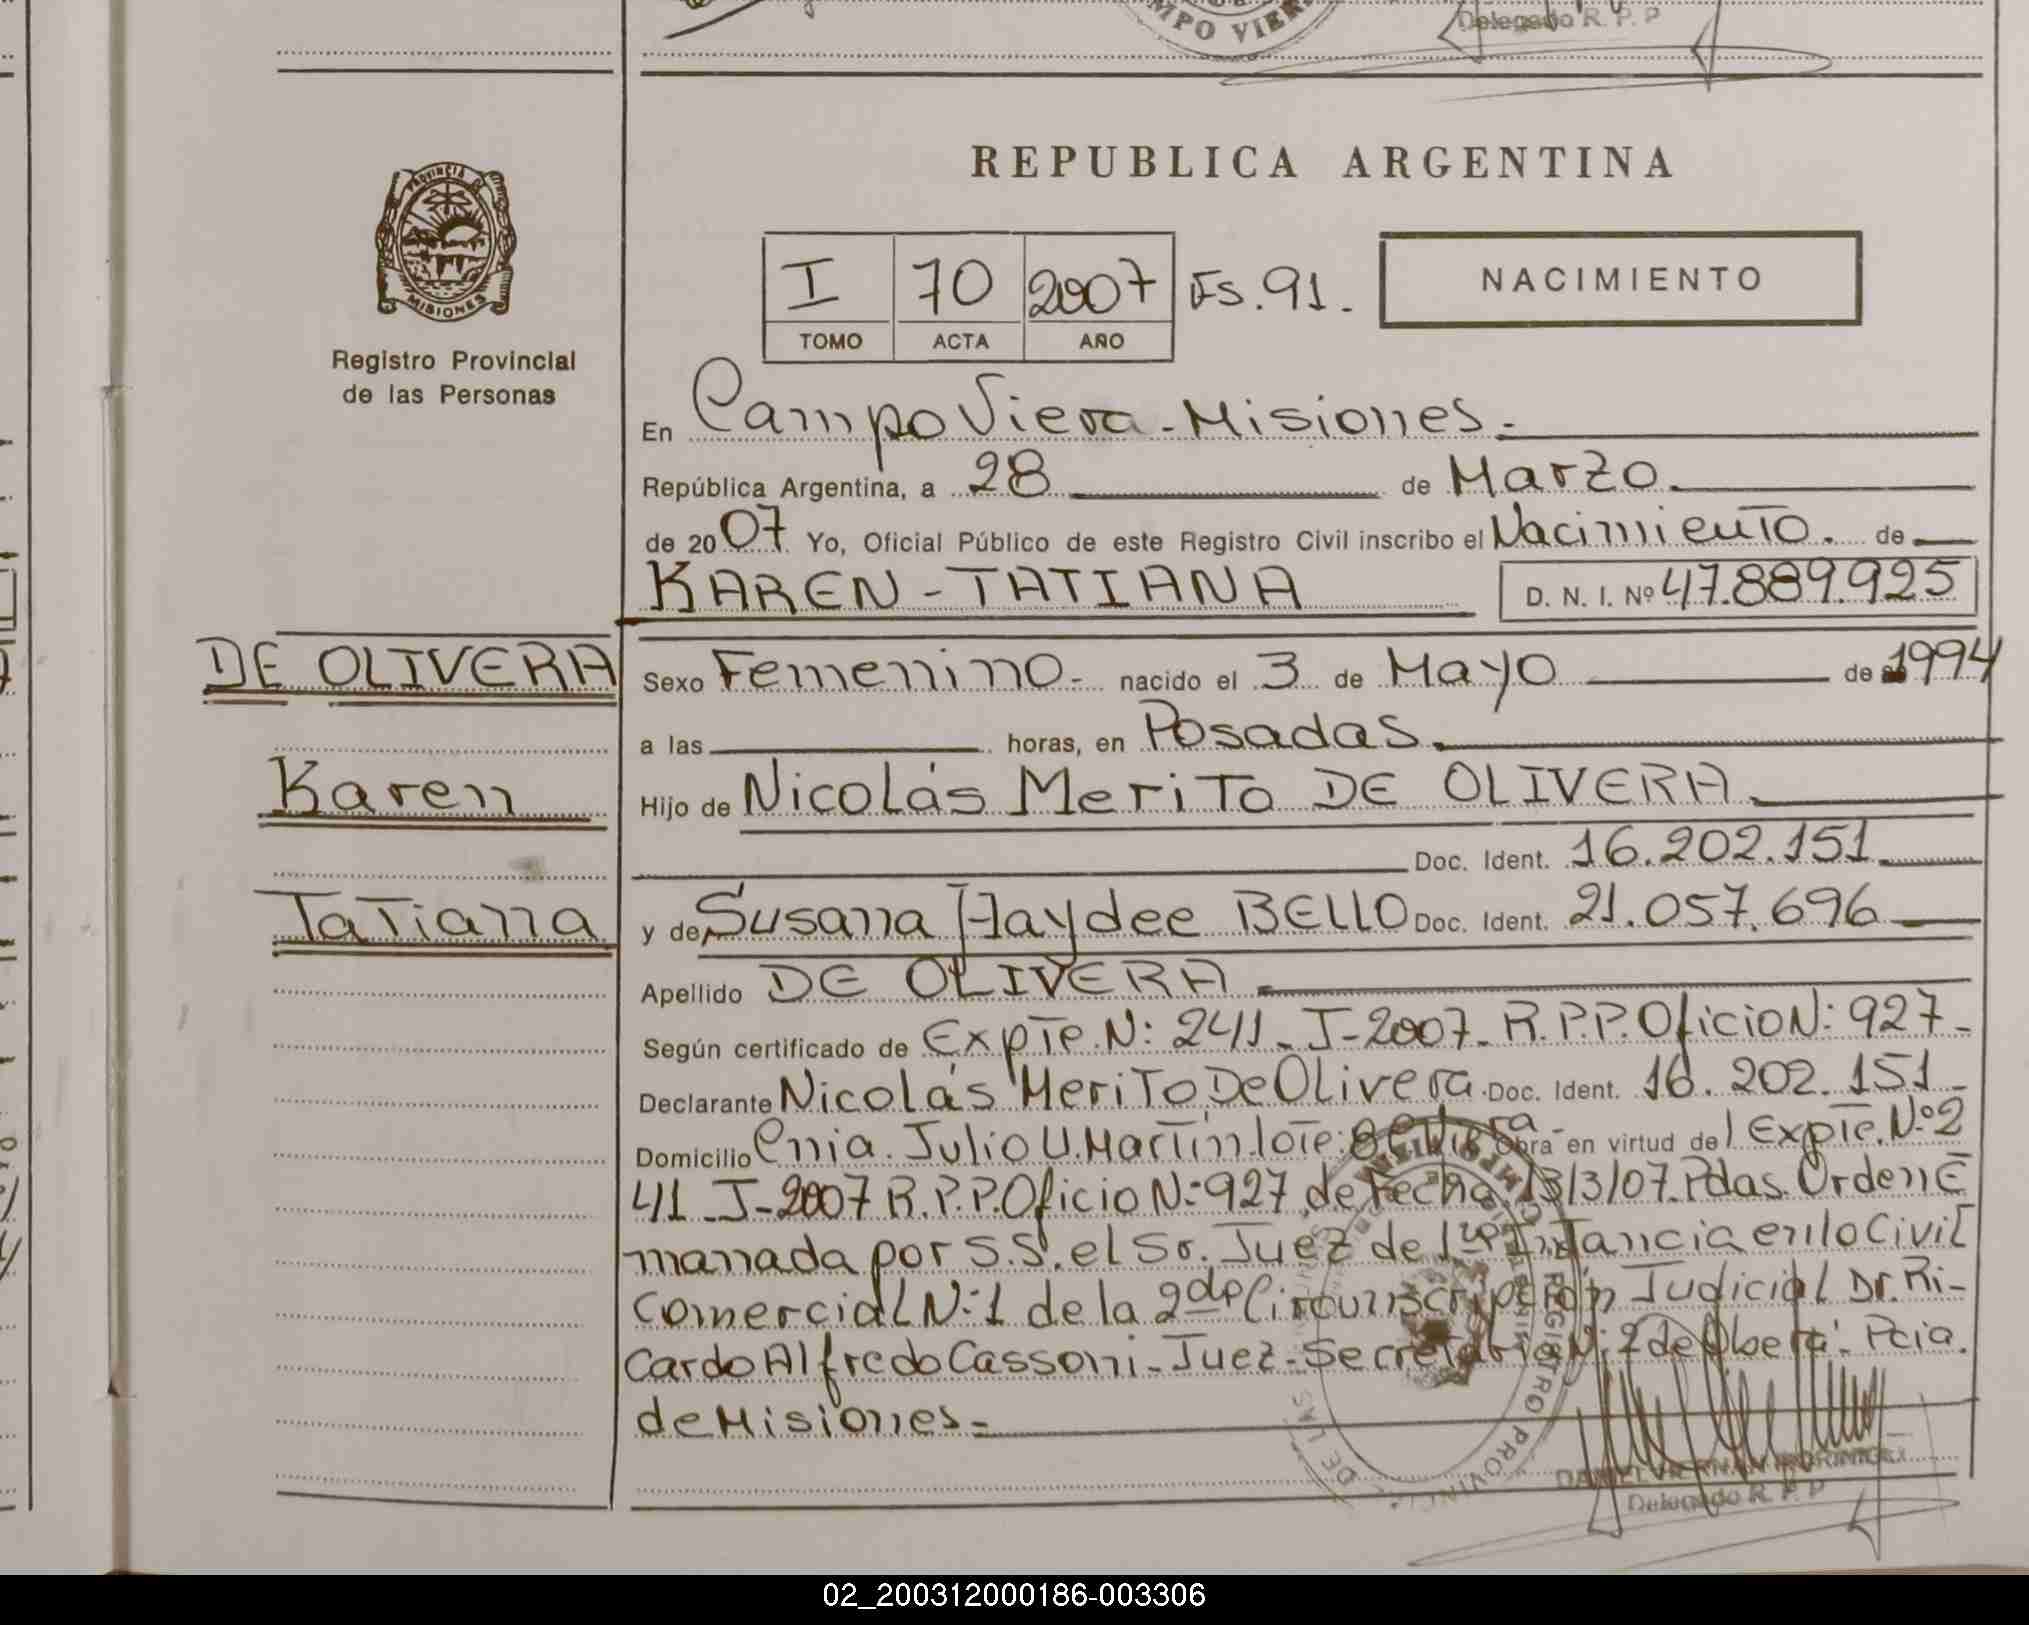 MPO VIERA
Delegado R. P. P
PROVINCIA DE
MISIONES
Registro Provincial
de las Personas
REPUBLICA ARGENTINA
I 70 2007 Fs. 91.
TOMO ACTA AÑO
NACIMIENTO
En Campo Viera - Misiones.-
República Argentina, a 28 de Marzo.
de 20 07 Yo, Oficial Público de este Registro Civil inscribo el Nacimiento. de
KAREN - TATIANA D. N. I. Nº 47.889.925
DE OLIVERA
Karen
Tatiana
Sexo Femenino.- nacido el 3 de Mayo de 1994
a las horas, en Posadas.
Hijo de Nicolás Merito DE OLIVERA.
Doc. Ident. 16.202.151
y de Susana Haydee BELLO Doc. Ident. 21.057.696
Apellido DE OLIVERA
Según certificado de Expte. N: 241-J-2007- R.P.P. Oficio N: 927-
Declarante Nicolás Merito De Olivera. Doc. Ident. 16.202.151-
Domicilio Cnia. Julio U. Martin lote: 8 Obra en virtud del Expte. Nº 2
41-J-2007 R.P.P. Oficio N: 927, de fecha 13/3/07. Pdas. Orden E
manada por S.S. el Sr. Juez de 1ra Instancia en lo Civil
Comercial N: 1 de la 2da Circunscripción Judicial Dr. Ri-
cardo Alfredo Cassoni - Juez - Secretaria N: 2 de Oberá. Pcia.
de Misiones.-
REGISTRO PROVINCIAL DE LAS
Delegado R. P. P
02_200312000186-003306